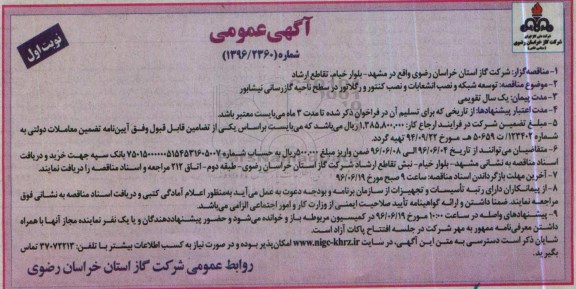 آگهی عمومی
شماره (۱۳۹۶/۲۳۶۰)
نوبت اول
شرکت گاز استان خراسان رضوی
۱- مناقصه‌گزار: شرکت گاز استان خراسان رضوی واقع در مشهد-بلوار خیام، تقاطع ارشاد
۲-موضوع مناقصه: توسعه شبکه و نصب انشعابات و نصب کنتور و رگلاتور در سطح ناحیه گازرسانی نیشابور
۳- مدت پیمان: یک سال تقویمی
۴- مدت اعتبار پیشنهادها: از تاریخی که برای تسلیم آن در فراخوان ذکر شده تا مدت ۳ ماه می‌بایست معتبر باشد.
۵- مبلغ تضمین شرکت در فرایند ارجاع کار: ۱،۳۸۵،۸۰۰،۰۰۰ریال می‌باشد که می‌بایست براساس یکی از تضامین قابل قبول وفق آیین‌نامه تضمین معاملات دولتی به
شماره ۱۲۳۴۰۲/ت ۵۰۶۵۹ هـ مورخ ۹۴/۰۹/۲۲ تهیه گردد.
۶- متقاضیان می‌توانند از تاریخ ۹۶/۰۶/۰۴ الی ۹۶/۰۶/۰۸ ضمن واریز مبلغ ۵۰۰،۰۰۰ریال به حساب شماره بانک سپه جهت خرید و دریافت
اسناد مناقصه به نشانی مشهد- بلوار خیام- نبش تقاطع ارشاد شرکت گاز استان خراسان رضوی- طبقه دوم-اتاق ۲۱۲ مراجعه و اسناد مناقصه را دریافت نمایند.
۷- آخرین مهلت بازگرداندن اسناد مناقصه: ساعت ۹ صبح مورخ ۹۶/۰۶/۱۹
۸- از پیمانکاران دارای رتبه تأسیسات و تجهیزات از سازمان برنامه و بودجه دعوت به عمل می‌آید به‌منظور اعلام آمادگی کتبی و دریافت اسناد مناقصه به نشانی فوق
مراجعه نمایند. ضمناً داشتن و ارائه گواهینامه تأیید صلاحیت ایمنی از وزارت کار و امور اجتماعی الزامی می‌باشد.
۹- پیشنهادهای واصله در ساعت ۱۰:۰۰ مورخ ۹۶/۰۶/۱۹ در کمیسیون مربوطه باز و خوانده می‌شود و حضور پیشنهاددهندگان و یا یک نفر نماینده مجاز آنها با همراه
داشتن معرفی‌نامه ممهور به مهر شرکت در جلسه افتتاح پاکات آزاد است.
شایان ذکر است دسترسی به متن این آگهی، در سایت www.nigc-khrz.ir امکان‌پذیر بوده و در صورت نیاز به کسب اطلاعات بیشتر با تلفن: ۳۷۰۷۲۲۱۳ تماس
بگیرید.
روابط عمومی شرکت گاز استان خراسان رضوی